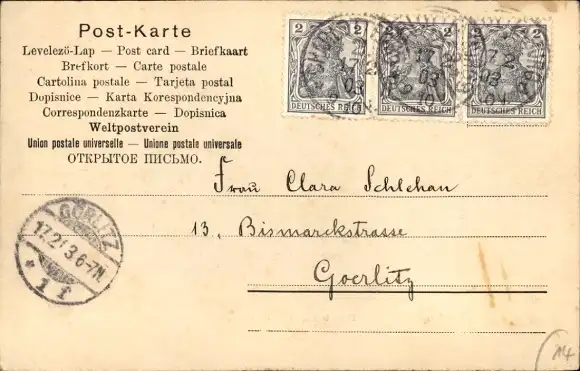 Post-Karte
Levelezö-Lap — Post card — Briefkaart
Brefkort — Carte postale
Cartolina postale — Tarjeta postal
Dopisnice — Karta Korespondencyjna
Correspondenzkarte — Dopisnica
Weltpostverein
Union postale universelle — Unione postale universale
ОТКРЫТОЕ ПИСЬМО.
2 2 2 2 2 2
DEUTSCHES REICH DEUTSCHES REICH DEUTSCHES REICH
Frau Clara Schlehan
13, Bismarckstrasse
Goerlitz
GÖRLITZ
17.2.03 6-7N
* 1 f
14